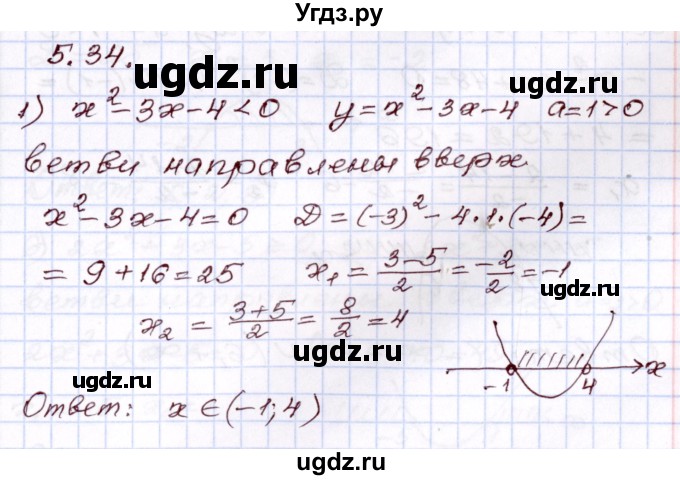 Угдз.ру
5.34.
ugdz.ru
1) x² - 3x - 4 < 0   y = x² - 3x - 4   a = 1 > 0
ветви направлены вверх
x² - 3x - 4 = 0   D = (-3)² - 4·1·(-4) =
ugdz.ru ugdz.ru
= 9 + 16 = 25   x₁ = (3-5)/2 = -2/2 = -1
ugdz.ru
x₂ = (3+5)/2 = 8/2 = 4
ugdz.ru
-1 4 x
Ответ: x ∈ (-1; 4)
ugdz.ru ugdz.ru
ugdz.ru